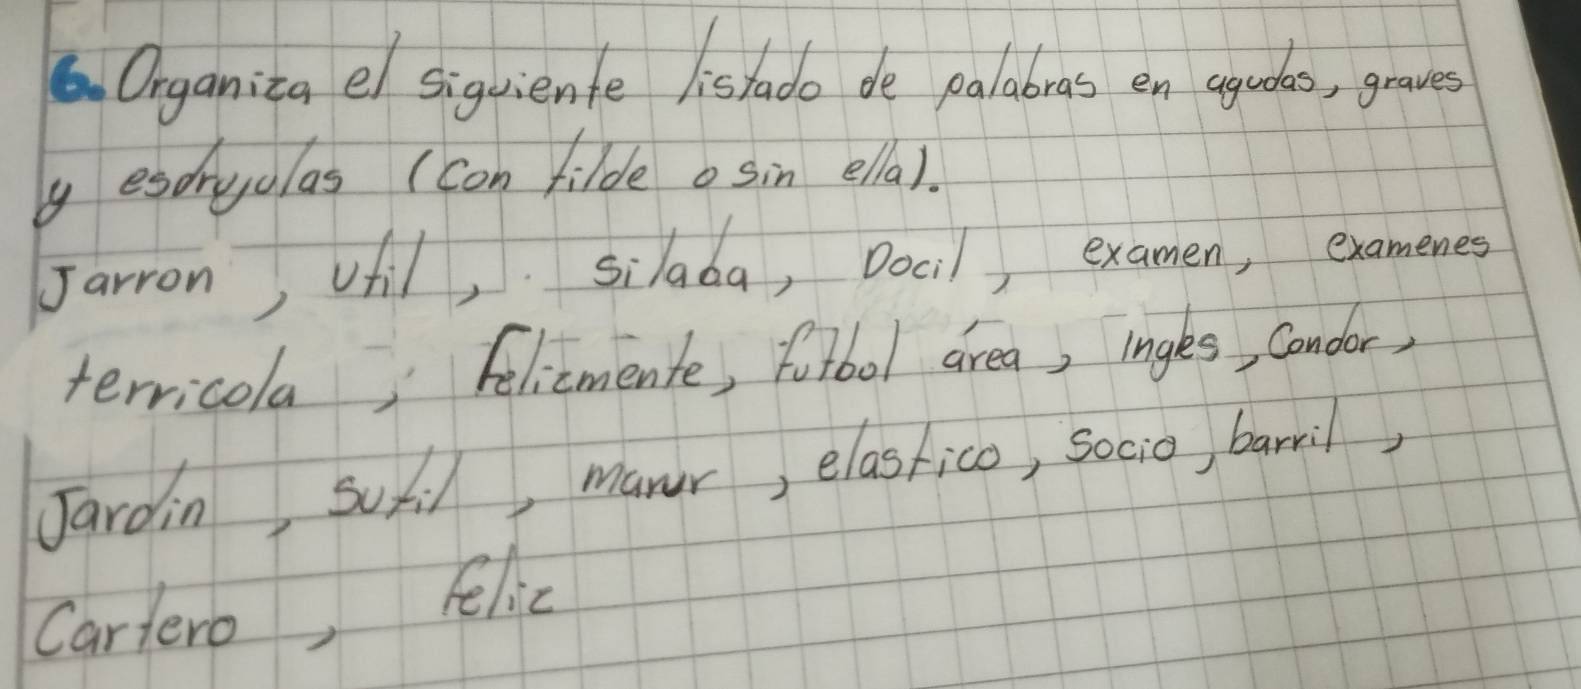 6. Organiza el siguiente listado de palabras en agudas, graves
y esdrujulas (con tilde o sin ella).
Jarron, util, silaba, Docil, examen, examenes
terricola, felizmente, futbol área, ingles, Condor,
Jardin, sutil, elastico, socio, barril,
Cartero, feliz